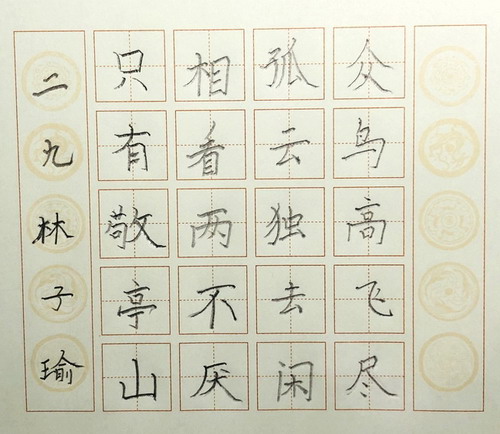 众鸟高飞尽
孤云独去闲
相看两不厌
只有敬亭山
二九林子瑜